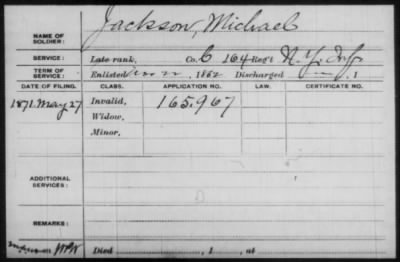 Jackson, Michael
NAME OF SOLDIER:
SERVICE: Late rank, Co. C 164 Reg't N.Y. Inf.
TERM OF SERVICE: Enlisted , 1862 Discharged , 1
DATE OF FILING. CLASS. APPLICATION NO. LAW. CERTIFICATE NO.
1871. May 27 Invalid, 165.967
Widow,
Minor,
ADDITIONAL SERVICES:
REMARKS:
Died , 1 , at